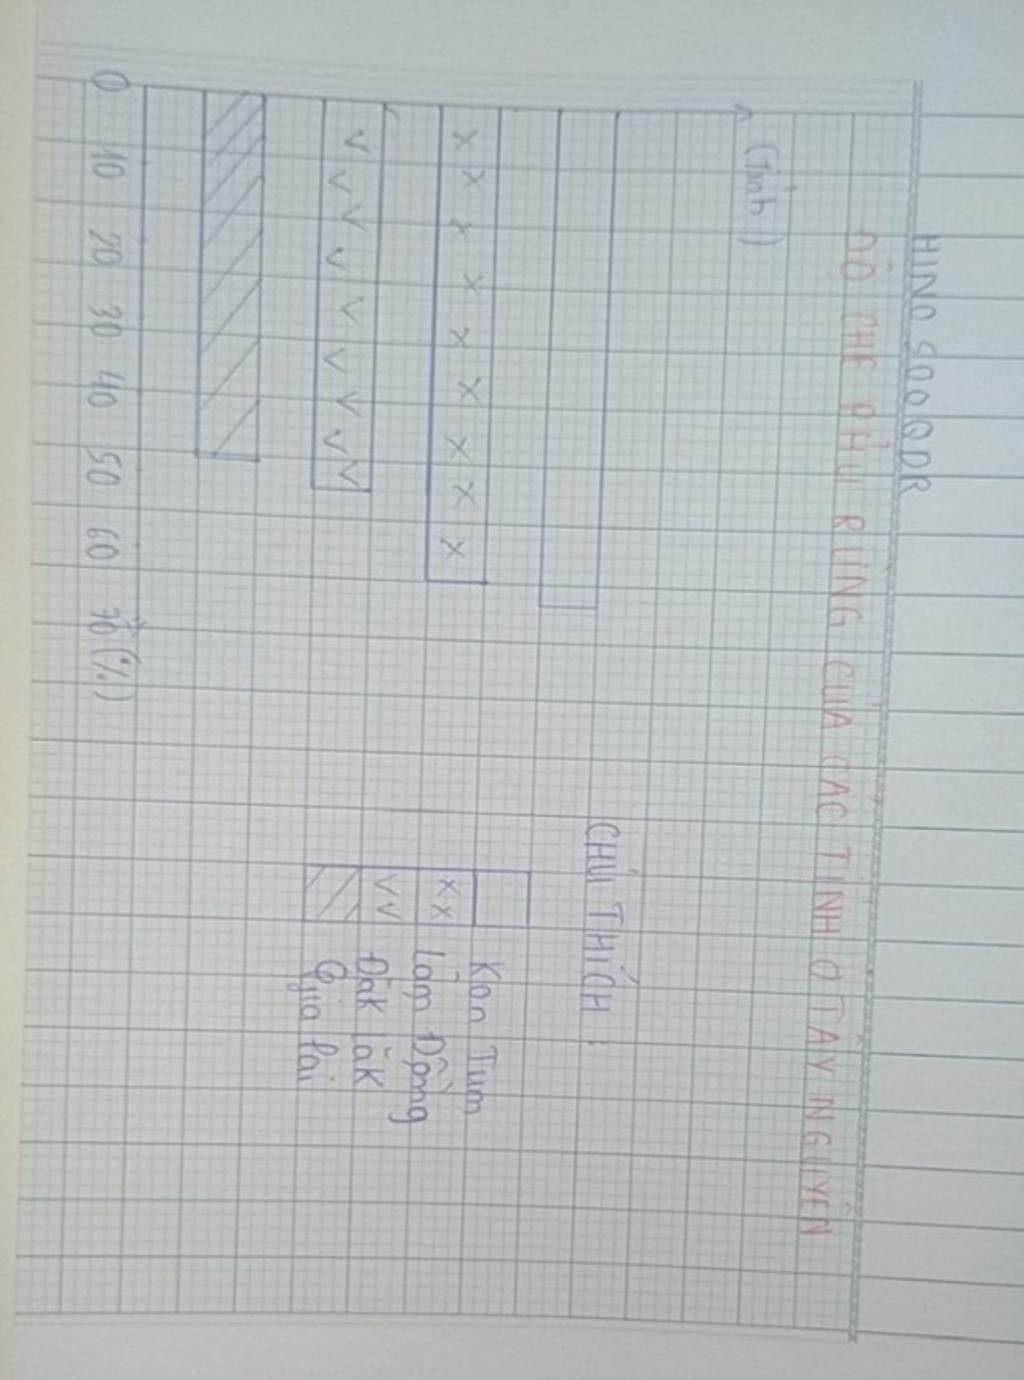 HINO SOOQDR
ĐỘ CHE PHỦ RỪNG CỦA CÁC TỈNH Ở TÂY NGUYÊN
(Tỉnh)
CHÚ THÍCH:
Kon Tum
Lâm Đồng
Đắk Lắk
Gia Lai
0 10 20 30 40 50 60 70 (%)